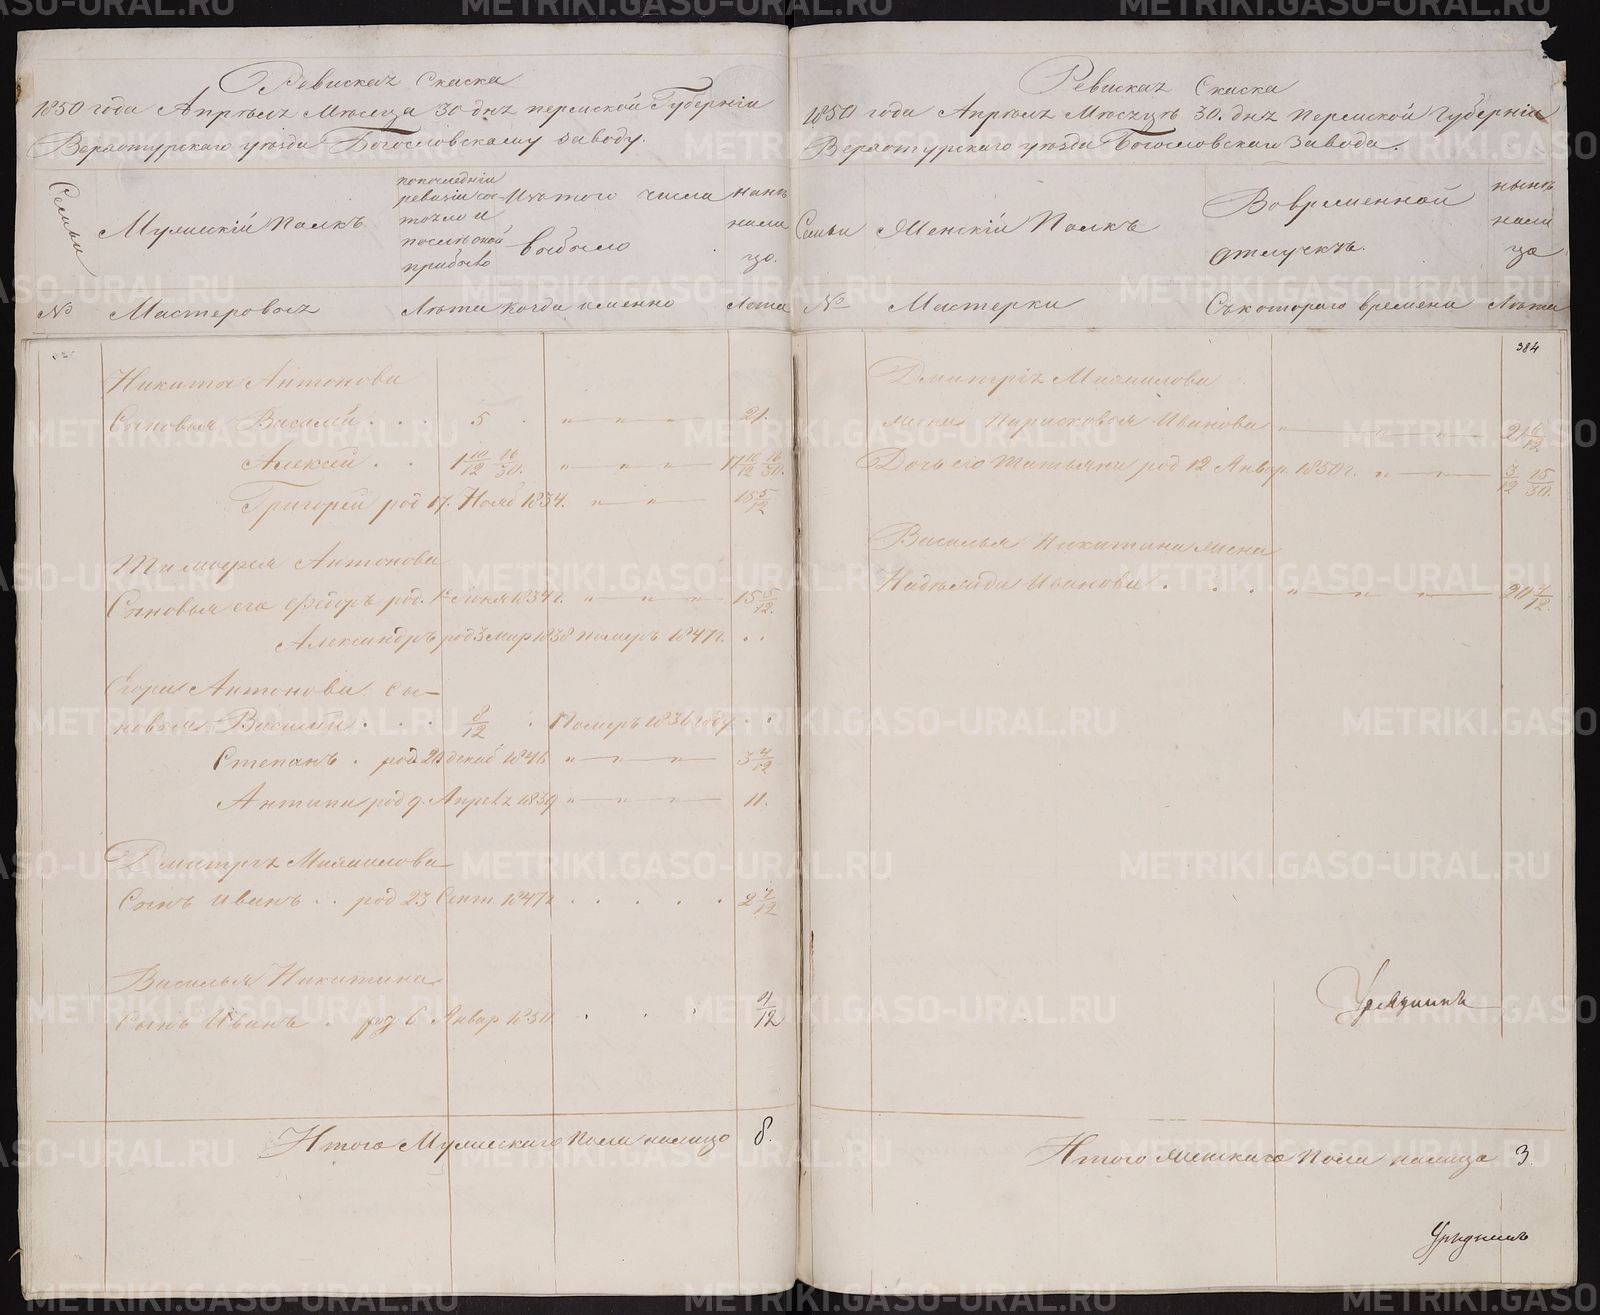 Ревискаѧ Скаска
1850 года Апрѣлѧ Мѣсеца 30 днѧ пермской Губерніи
Верхотурскаго уѣзда Богословскому заводу.
Семьи
Мужискій Полкъ
попоследніи
ревизіи сос-
тояло и
послѣ оной
прибыло
Изтого числа
выбыло
нали
цо.
№ Мастеровыѧ Лѣта когда именно Лѣта
Никита Антонова
Сыновья Василей . . . 5 . „ „ „ 21.
Алексей . . 1 10/12 16/30. „ „ „
Григорей род 17. Нояб 1834. „ „ 15 5/12
Тимофея Антонова
Сыновья его Федоръ род. „ „ „ 15 5/12.
Александръ род 3 Мар 1838 Померъ 1847 г. . .
Егора Антонова Сы-
новья Василий . . . 8/12 . Померъ 1836 году . .
Степанъ . род 20 декаб 1846 „ „ „ 3 4/12
Антипа род 9. Апрелѧ 1839 „ „ „ 11.
Дмитрѧ Михаилова
Сынъ Иванъ . . род 23 Сент. 1847 г. . . . . 2 7/12
Василья Никитина
Сынъ Иванъ . род 6 Январ 1850 . . . 4/12
Итого Мужескаго Пола налицо 8.
Ревискаѧ Скаска
1850 года Апрѣлѧ Мѣсѧцъ 30. днѧ Пермской Губерніи
Верхотурскаго уѣзда Богословскаго Завода.
Семьи Женскій Полкъ
Вовременной
отлучкъ.
нынѣ
нали
ца
№ Мастерки Съкотораго времени Лѣта
384
Дмитріѧ Михаилова
жена Парасковья Иванова „ „ „ 21 6/12
Дочь его Татьяна род 12 Январ. 1850 г. „ „ 3/12 15/30.
Василья Никитина жена
Надежида Иванова . . . . „ „ „ 20 4/12
Урядникъ
Итого женскаго Пола налицо 3.
Урядникъ
METRIKI.GASO-URAL.RU